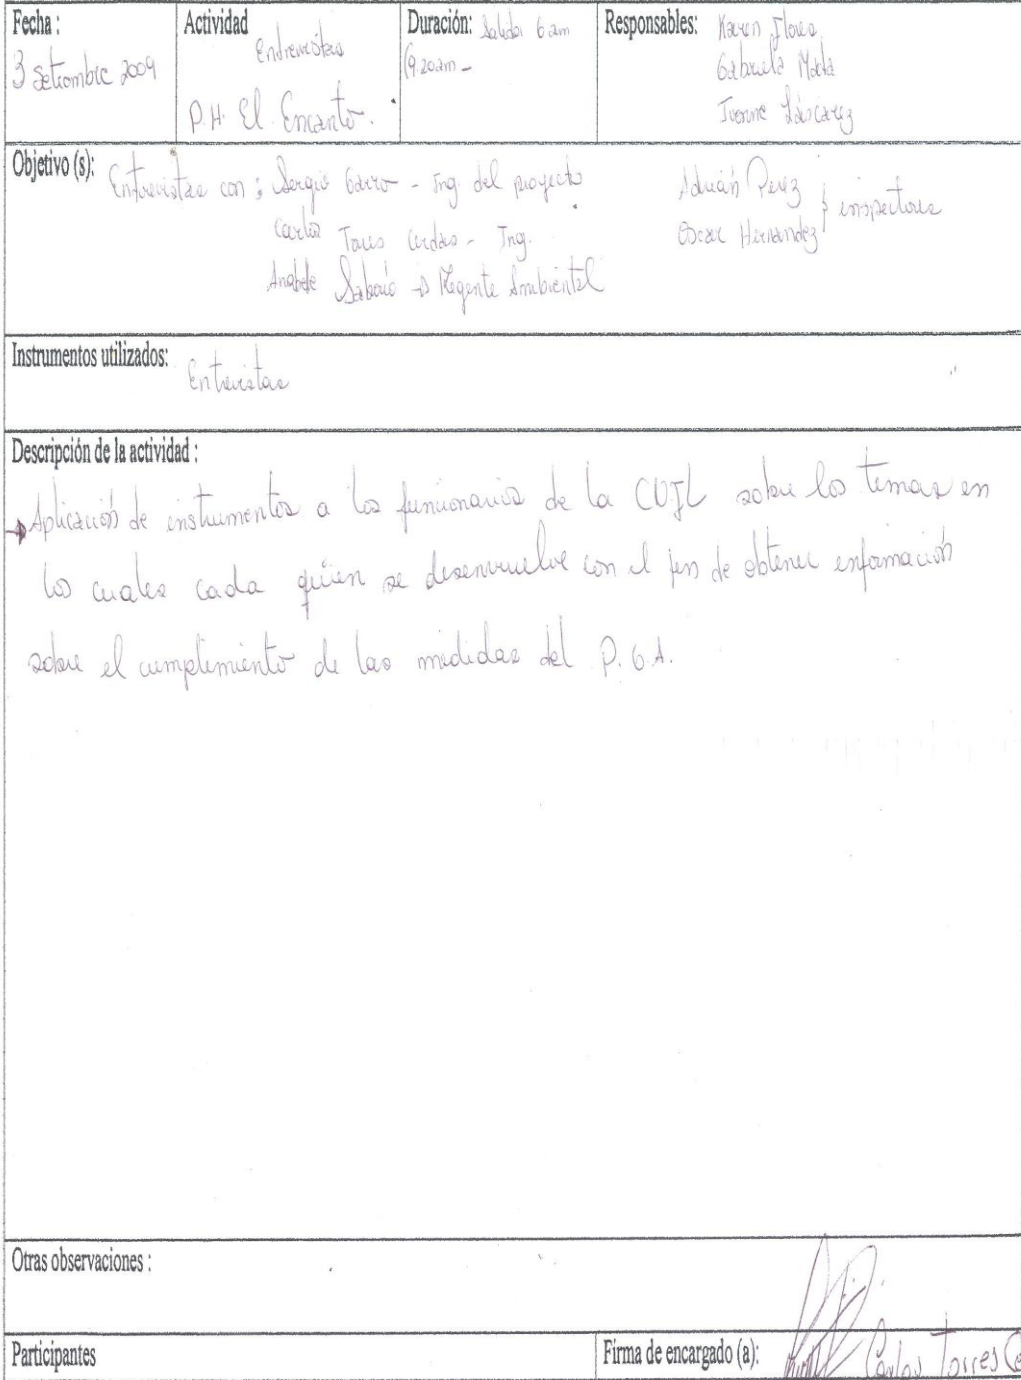 Fecha :
3 Setiembre 2009
Actividad
Entrevistas
P.H. El Encanto.
Duración: Salida 6 am
(9.20am -
Responsables: Karen Flores
Gabriela Mata
Ivonne
Objetivo (s): Entrevistas con : Sergio Garro - Ing. del proyecto
Carlos Torres Cerdas - Ing.
Anabelle Saborío → Regente Ambiental
Adrián Perez
Oscar Hernandez } inspectores
Instrumentos utilizados:
Entrevistas
Descripción de la actividad :
→ Aplicación de instrumentos a los funcionarios de la sobre los temas en
los cuales cada quien se desenvuelve con el fin de obtener información
sobre el cumplimiento de las medidas del P.G.A.
Otras observaciones :
Participantes
Firma de encargado (a):
Carlos Torres